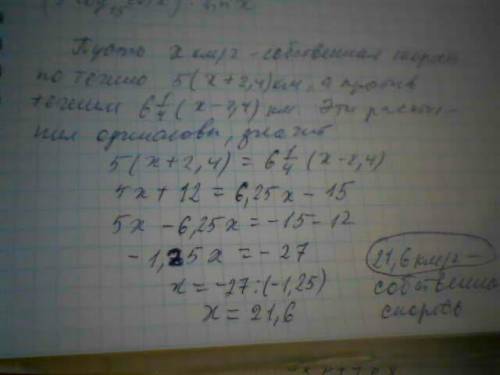 Пусть x км/г - собственная скорость
по течению 5(x+2,4) км, а против
течения 6 1/4 (x-2,4) км. Эти расстоя-
ния одинаковы, значит
5(x+2,4) = 6 1/4 (x-2,4)
5x + 12 = 6,25x - 15
5x - 6,25x = -15 - 12
-1,25x = -27
x = -27:(-1,25)
x = 21,6
21,6 км/г -
собственная
скорость